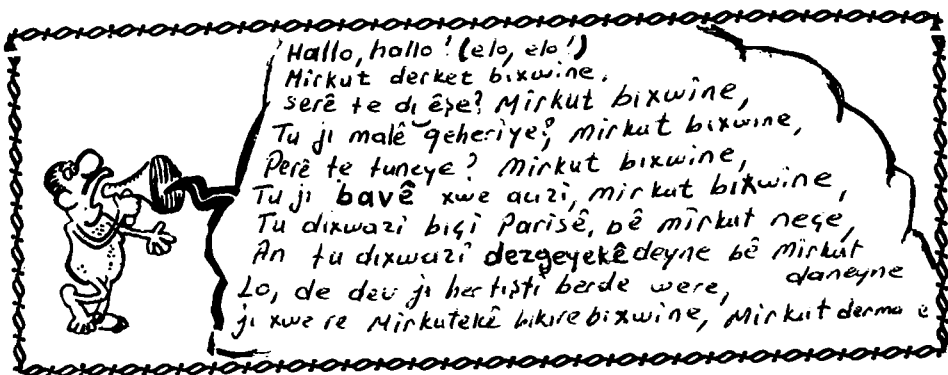 Hallo, hallo! (elo, elo!)
Mirkut derket bixwine.
serê te di êşe? Mîrkut bixwîne,
Tu ji malê qeheriye? mirkut bixwine,
Perê te tuneye? Mirkut bixwîne,
Tu ji bavê xwe auzi, mirkut bixwine,
Tu dixwazi biçi Parisê, bê mîrkut neçe,
An tu dixwazî dezgeyekê deyne bê Mirkut
daneyne
Lo, de dev ji her tişti berde were,
ji xwe re Mirkutekê bikire bixwîne, Mirkut derma e